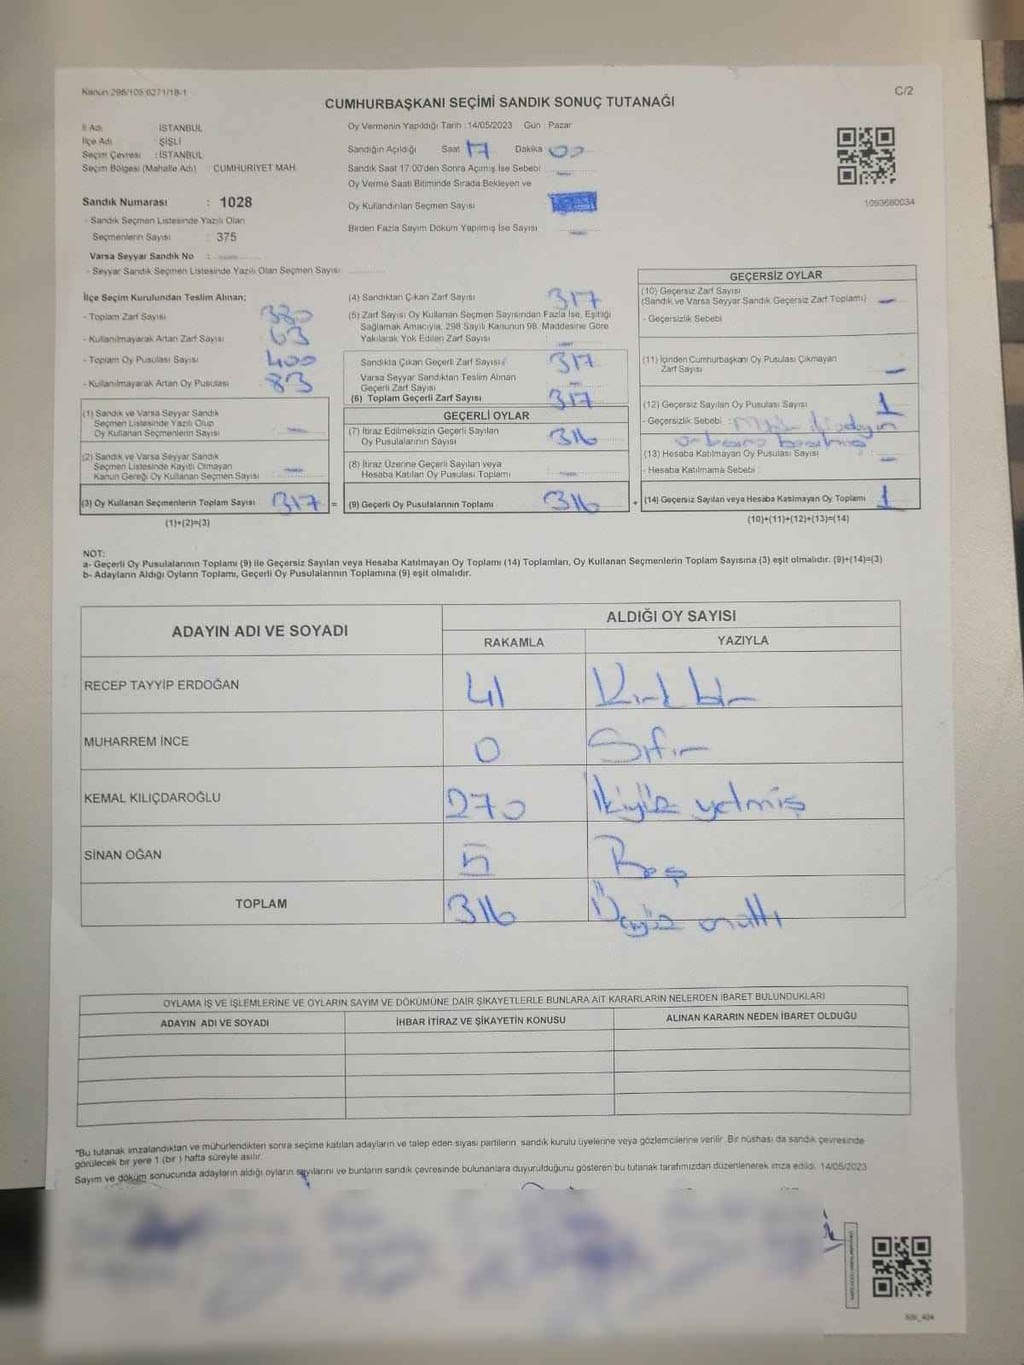 Kanun 298/105 6271/18-1
C/2
CUMHURBAŞKANI SEÇİMİ SANDIK SONUÇ TUTANAĞI
İl Adı : İSTANBUL
İlçe Adı : ŞİŞLİ
Seçim Çevresi : İSTANBUL
Seçim Bölgesi (Mahalle Adı) : CUMHURİYET MAH.
Sandık Numarası : 1028
- Sandık Seçmen Listesinde Yazılı Olan
Seçmenlerin Sayısı : 375
Varsa Seyyar Sandık No :
- Seyyar Sandık Seçmen Listesinde Yazılı Olan Seçmen Sayısı
Oy Vermenin Yapıldığı Tarih : 14/05/2023 Gün : Pazar
Sandığın Açıldığı Saat 17 Dakika 00
Sandık Saat 17:00'den Sonra Açılmış İse Sebebi
Oy Verme Saati Bitiminde Sırada Bekleyen ve
Oy Kullandırılan Seçmen Sayısı
Birden Fazla Sayım Döküm Yapılmış İse Sayısı
1093680034
İlçe Seçim Kurulundan Teslim Alınan;
- Toplam Zarf Sayısı 380
- Kullanılmayarak Artan Zarf Sayısı 63
- Toplam Oy Pusulası Sayısı 400
- Kullanılmayarak Artan Oy Pusulası 83
(1) Sandık ve Varsa Seyyar Sandık
Seçmen Listesinde Yazılı Olup
Oy Kullanan Seçmenlerin Sayısı —
(2) Sandık ve Varsa Seyyar Sandık
Seçmen Listesinde Kayıtlı Olmayan
Kanun Gereği Oy Kullanan Seçmen Sayısı —
(3) Oy Kullanan Seçmenlerin Toplam Sayısı 317 =
(1)+(2)=(3)
(4) Sandıktan Çıkan Zarf Sayısı 317
(5) Zarf Sayısı Oy Kullanan Seçmen Sayısından Fazla İse, Eşitliği
Sağlamak Amacıyla, 298 Sayılı Kanunun 98. Maddesine Göre
Yakılarak Yok Edilen Zarf Sayısı —
Sandıkta Çıkan Geçerli Zarf Sayısı 317
Varsa Seyyar Sandıktan Teslim Alınan
Geçerli Zarf Sayısı —
(6) Toplam Geçerli Zarf Sayısı 317
GEÇERLİ OYLAR
(7) İtiraz Edilmeksizin Geçerli Sayılan
Oy Pusulalarının Sayısı 316
(8) İtiraz Üzerine Geçerli Sayılan veya
Hesaba Katılan Oy Pusulası Toplamı —
(9) Geçerli Oy Pusulalarının Toplamı 316 +
GEÇERSİZ OYLAR
(10) Geçersiz Zarf Sayısı
(Sandık ve Varsa Seyyar Sandık Geçersiz Zarf Toplamı) —
- Geçersizlik Sebebi :
(11) İçinden Cumhurbaşkanı Oy Pusulası Çıkmayan
Zarf Sayısı —
(12) Geçersiz Sayılan Oy Pusulası Sayısı 1
- Geçersizlik Sebebi :
(13) Hesaba Katılmayan Oy Pusulası Sayısı —
- Hesaba Katılmama Sebebi :
(14) Geçersiz Sayılan veya Hesaba Katılmayan Oy Toplamı 1
(10)+(11)+(12)+(13)=(14)
NOT:
a- Geçerli Oy Pusulalarının Toplamı (9) ile Geçersiz Sayılan veya Hesaba Katılmayan Oy Toplamı (14) Toplamları, Oy Kullanan Seçmenlerin Toplam Sayısına (3) eşit olmalıdır. (9)+(14)=(3)
b- Adayların Aldığı Oyların Toplamı, Geçerli Oy Pusulalarının Toplamına (9) eşit olmalıdır.
ADAYIN ADI VE SOYADI
ALDIĞI OY SAYISI
RAKAMLA YAZIYLA
RECEP TAYYİP ERDOĞAN 41 Kırk bir
MUHARREM İNCE 0 Sıfır
KEMAL KILIÇDAROĞLU 270 İkiyüz yetmiş
SİNAN OĞAN 5 Beş
TOPLAM 316 Üçyüz onaltı
OYLAMA İŞ VE İŞLEMLERİNE VE OYLARIN SAYIM VE DÖKÜMÜNE DAİR ŞİKAYETLERLE BUNLARA AİT KARARLARIN NELERDEN İBARET BULUNDUKLARI
ADAYIN ADI VE SOYADI İHBAR İTİRAZ VE ŞİKAYETİN KONUSU ALINAN KARARIN NEDEN İBARET OLDUĞU
*Bu tutanak imzalandıktan ve mühürlendikten sonra seçime katılan adayların ve talep eden siyasi partilerin sandık kurulu üyelerine veya gözlemcilerine verilir .Bir nüshası da sandık çevresinde
görülecek bir yere 1 (bir ) hafta süreyle asılır.
Sayım ve döküm sonucunda adayların aldığı oyların sayılarını ve bunların sandık çevresinde bulunanlara duyurulduğunu gösteren bu tutanak tarafımızdan düzenlenerek imza edildi. 14/05/2023